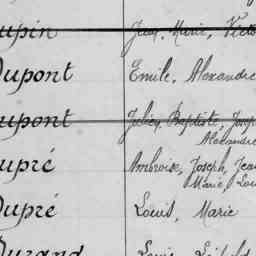 upin Jean, Marie, Victo
Dupont Emile, Alexandre
upont Julien, Baptiste, Josep
Alexandre
upré Ambroise, Joseph, Jean
Marie, Lou
Dupré Louis, Marie
Durand Louis, Léopold